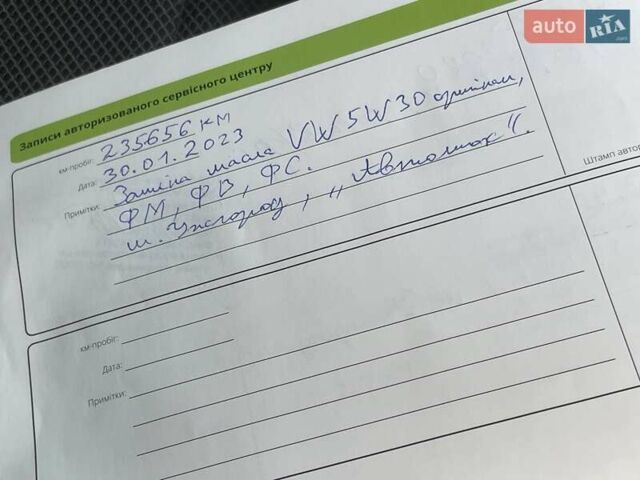 auto RIA .com
Записи авторизованого сервісного центру
км-пробіг: 235656 км
Дата: 30.01.2023
Примітки: Заміна масла VW 5W30 оригінал,
ФМ, ФВ, ФС.
м. Ужгород, „Автошок“.
Штамп автор
км-пробіг:
Дата:
Примітки: